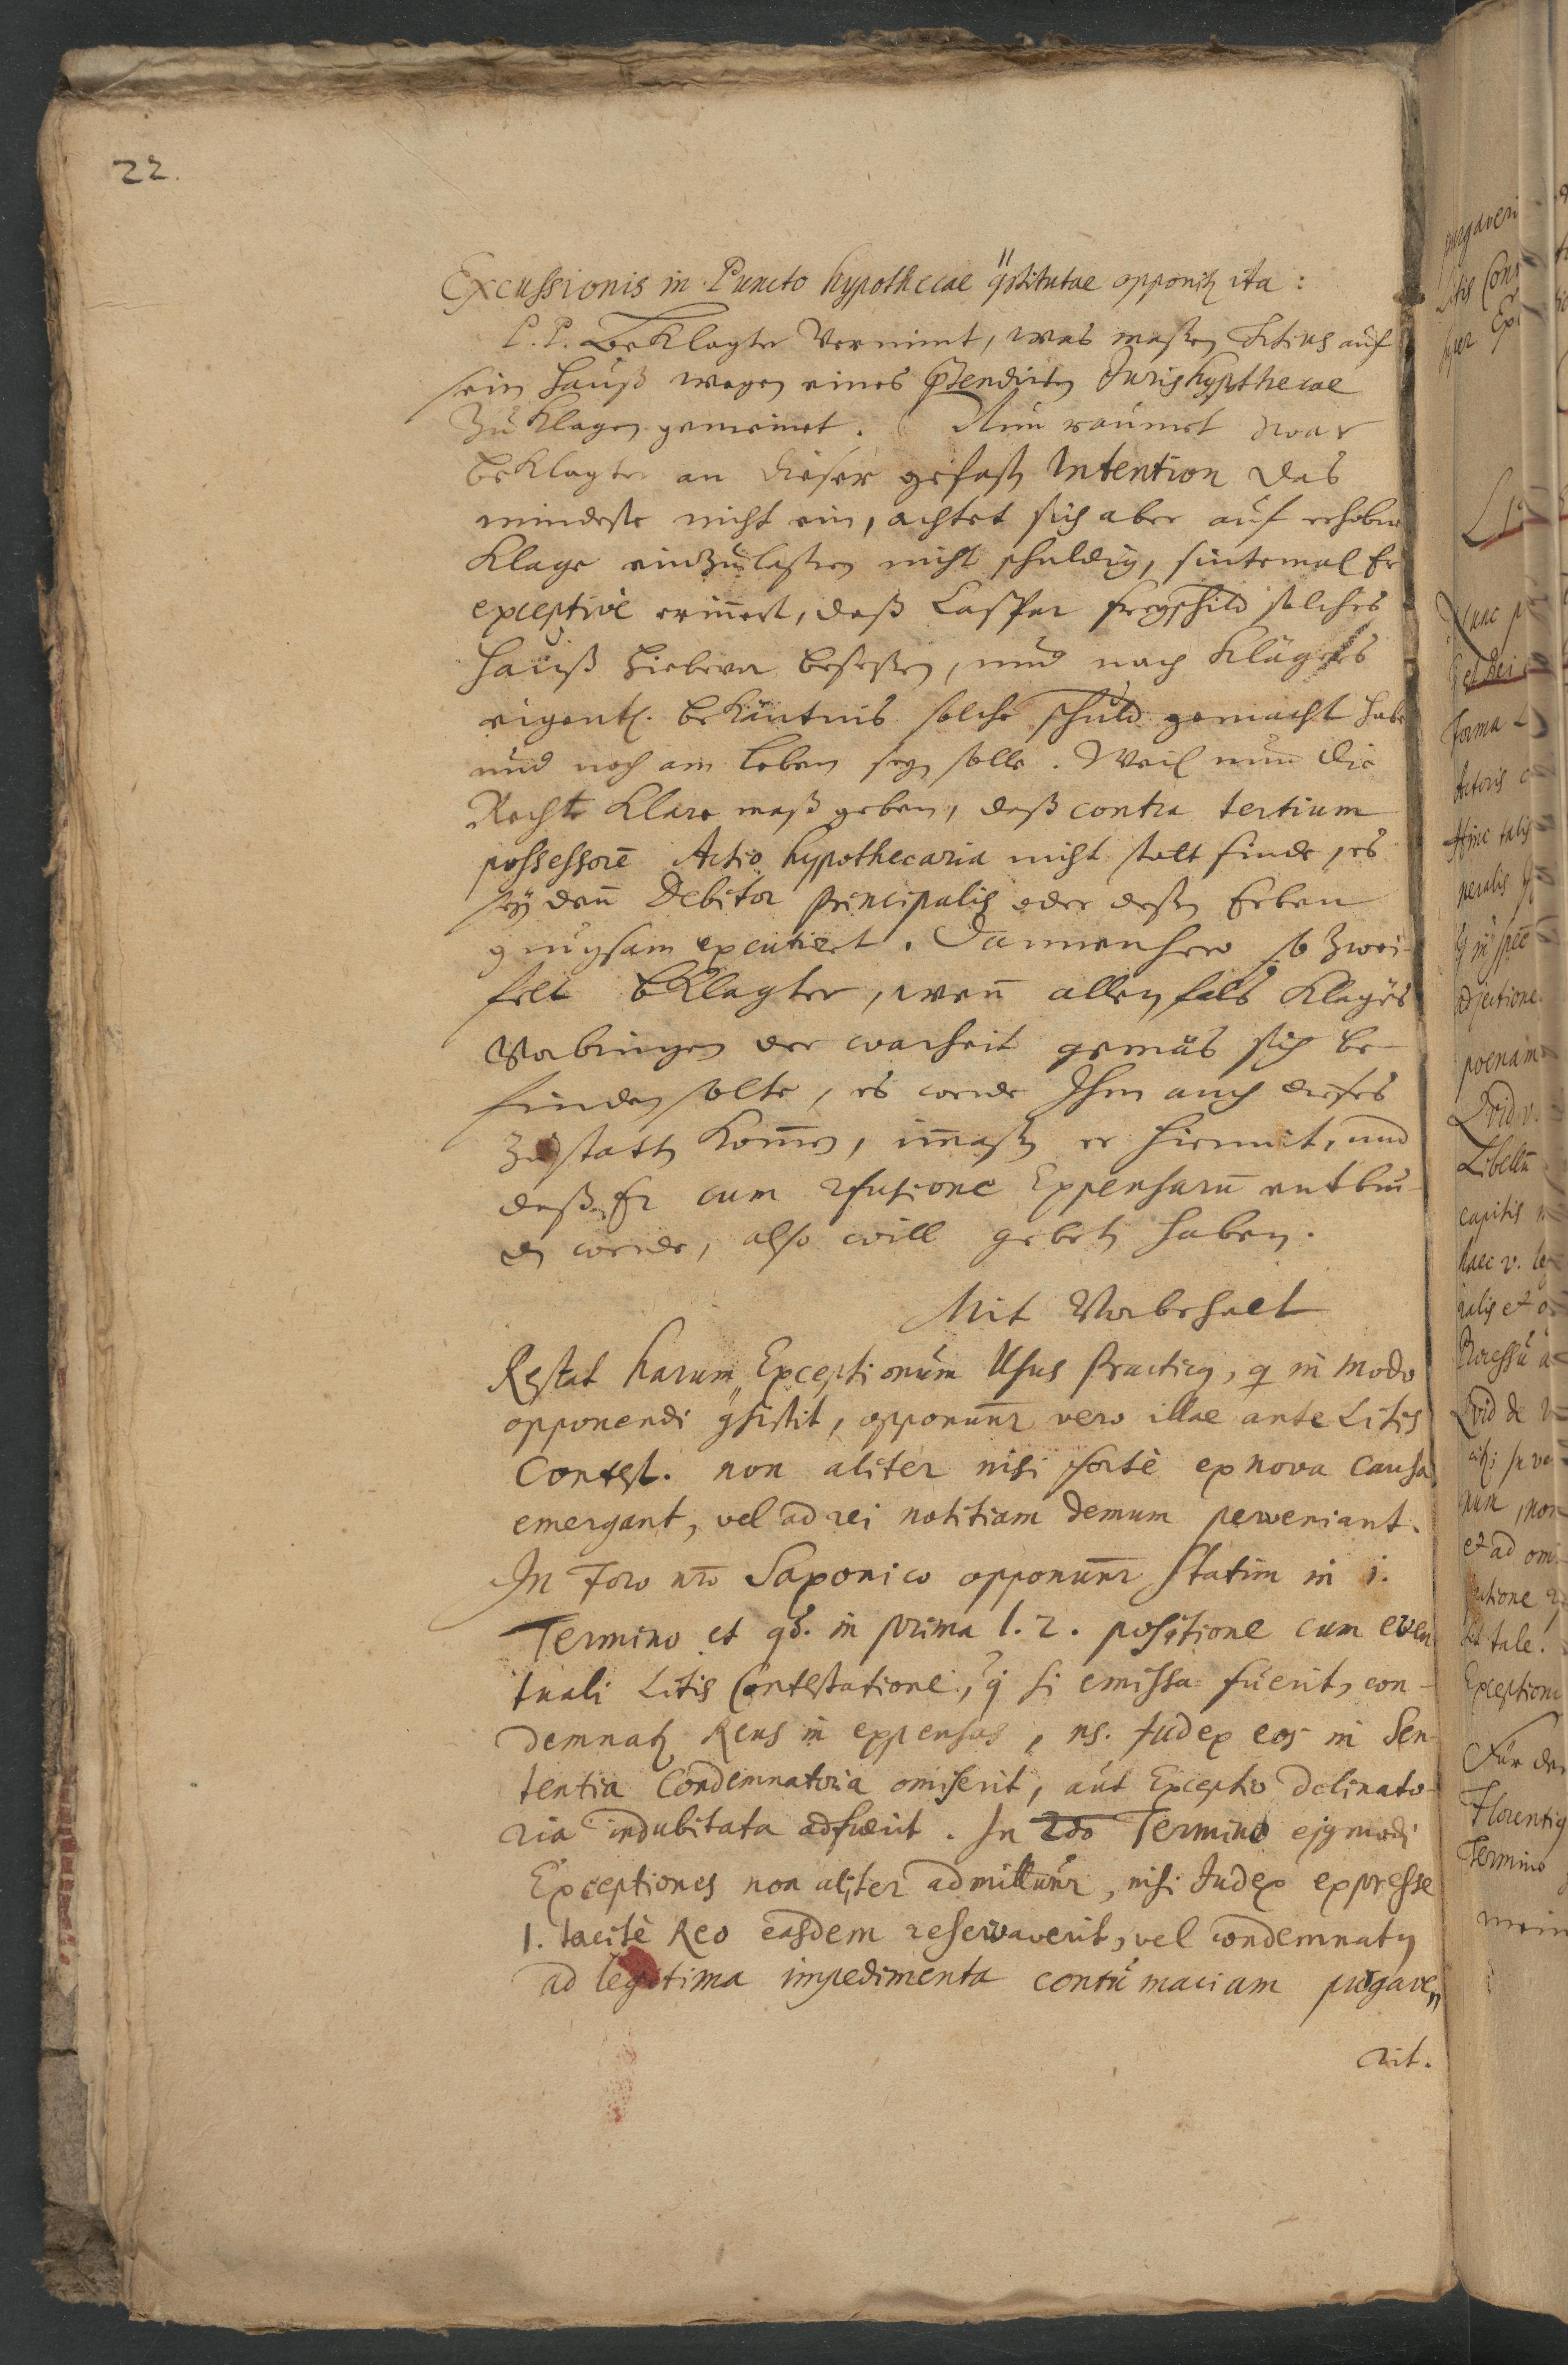 22.
Excussionis in Puncto hypothecae qstitutae opponitz ita:
P. P. Beklagter vernimt, was maßen Titius auf
sein Hauß wegen eines praetendirten Juris hypothecae
zu klagen gemeinet. Nun räumet zwar
beklagter an dieser gefasten Intention das
mindeste nicht ein, achtet sich aber auf erhobene
Klage einzulaßen nicht schuldig, sintemal Er
exceptivè erinnert, daß Caspar Freyschild solches
Hauß hiebevor beseßen, und nach Klägers
eigentl. bekäntnis solche schuld gemacht habe
und noch am leben seyn solle. Weil nun die
Rechte klare maß geben, daß contra tertium
possessorē Actio hypothecaria nicht statt finde, es
sey den̄ Debitor principalis oder deßen Erben
gnugsam excutiret. Dannenhero so zwei-
felt bklagter, wen̄ allenfals Klägers
Vorbringen der warheit gemäs sich be-
finden solte, es werde Ihm auch dieses
zu statten kom̄en, im̄aßen er hiermit, und
daß Er cum refusione Expensarū entbun-
den werde, also will gebeten haben.
Mit Vorbehalt
Restat harum Exceptionum Usus Practicq, q in modo
opponendi qsistit, opponunr vero illae ante Litis
Contest. non aliter nisi fortè ex nova causa
emergant, vel ad rei notitiam demum perveniant.
In Foro nrō Saxonico opponunr statim in 1.
Termino et qd. in prima l. 2. positione cum even
tuali Litis Contestatione, q si emissa fuerit, con-
demnatz Reus in expensas, ns. Judex eas in Sen-
tentia Condemnatoria omiserit, aut Exceptio declinato-
ria indubitata adfuerit. In 2do Termino ejqmodi
Exceptiones non aliter admittunr, nisi Judex expresse
l. tacitè Reo easdem reservaverit, vel condemnatq
ad legitima impedimenta contumaciam purgave
rit.